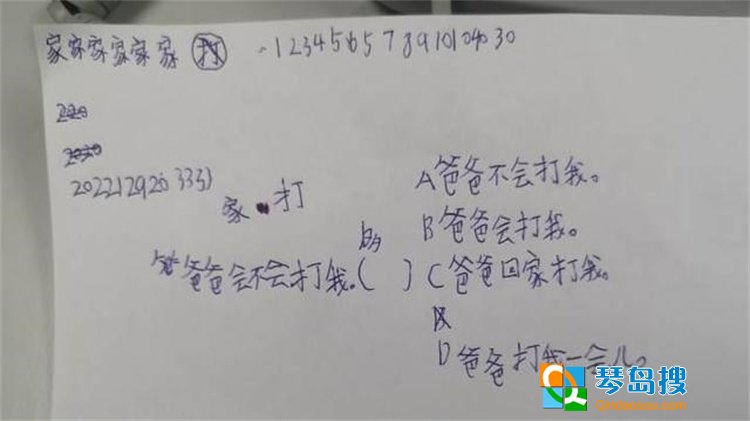 家家家家家家 打 .123456578910104030
2022129203331
家 打
爸爸会不会打我。( )
A爸爸不会打我。
B爸爸会打我。
C爸爸回家打我。
D爸爸打我一会儿。
琴岛搜